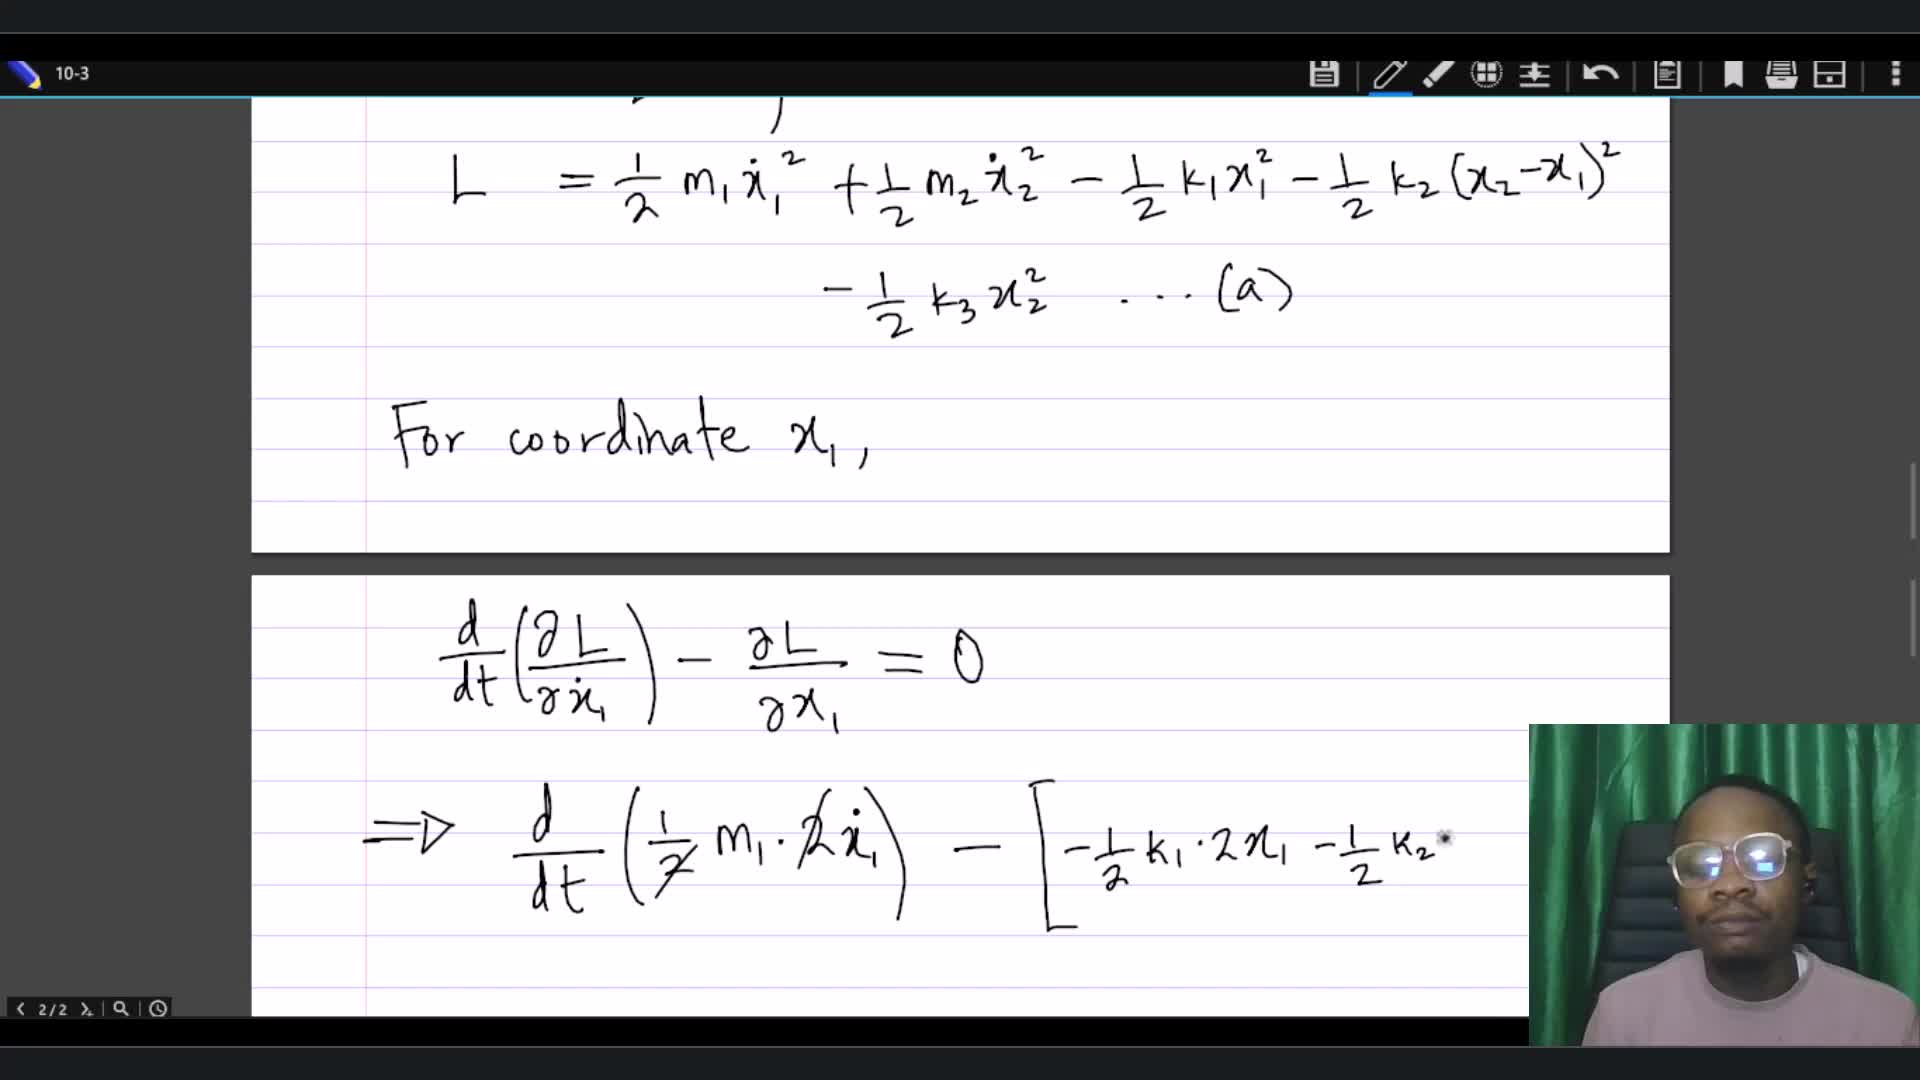 10-3
L = 1/2 m₁ẋ₁² + 1/2 m₂ẋ₂² - 1/2 k₁x₁² - 1/2 k₂(x₂-x₁)²
- 1/2 k₃x₂² .... (a)
For coordinate x₁,
d/dt (∂L/∂ẋ₁) - ∂L/∂x₁ = 0
⇒ d/dt (1/2 m₁ · 2ẋ₁) - [-1/2 k₁ · 2x₁ - 1/2 k₂
2/2